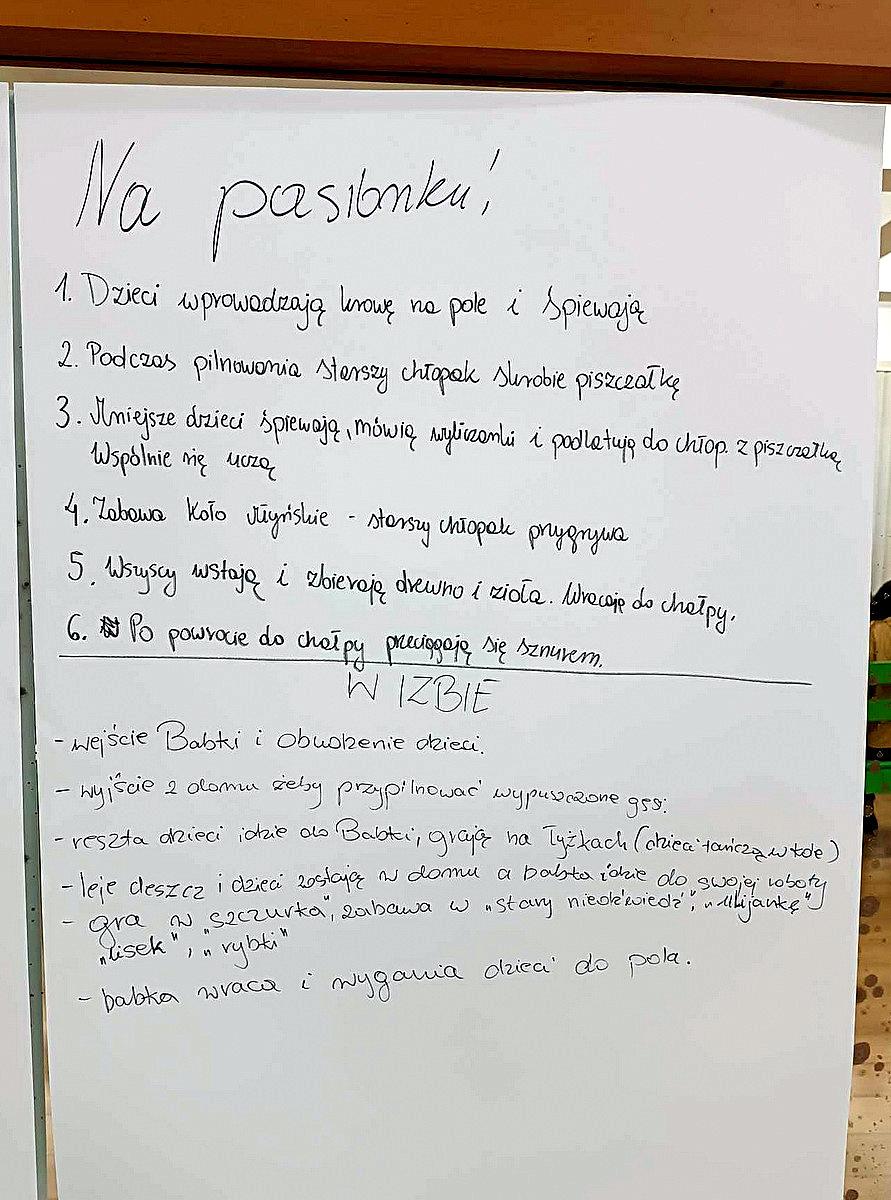 Na pasionku!
1. Dzieci wprowadzają krowę na pole i śpiewają
2. Podczas pilnowania starszy chłopak skrobie piszczałkę
3. Mniejsze dzieci śpiewają, mówią wyliczanki i podlatują do chłop. z piszczałką
Wspólnie się uczą
4. Zabawa Koło Młyńskie - starszy chłopak przygrywa
5. Wszyscy wstają i zbierają drewno i zioła. Wracają do chałpy.
6. Po powrocie do chałpy przeciągają się sznurem.
W IZBIE
- wejście Babki i obudzenie dzieci.
- wyjście z domu żeby przypilnować wypuszczone gęsi.
- reszta dzieci idzie do Babki, grają na łyżkach (dzieci tańczą w kole)
- leje deszcz i dzieci zostają w domu a babka idzie do swojej roboty
- gra w "szczurka", zabawa w "stary niedźwiedź", "Mijankę"
"lisek", "rybki"
- babka wraca i wygania dzieci do pola.